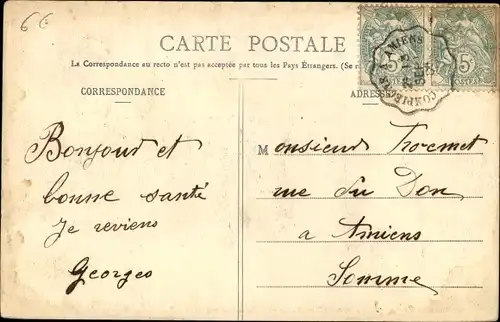 6€
CARTE POSTALE
La Correspondance au recto n'est pas acceptée par tous les Pays Étrangers. (Se
CORRESPONDANCE
ADRESSE
AMIENS
COMPIÈGNE
5
5
POSTES
Bonjour et
bonne santé
Je reviens
Georges
Monsieur
rue du Don
a Amiens
Somme